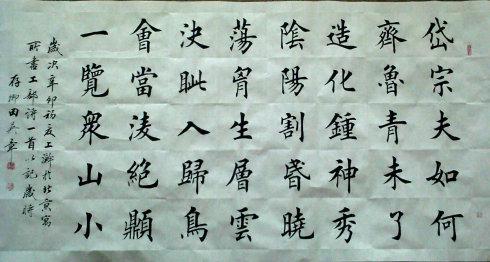 岱宗夫如何
齊魯青未了
造化鍾神秀
陰陽割昬曉
蕩胷生層雲
決眦入歸鳥
會當淩絕顚
一覽衆山小
歲次辛卯初夏於北京寫
所書工部詩一首以記歲時
田英章